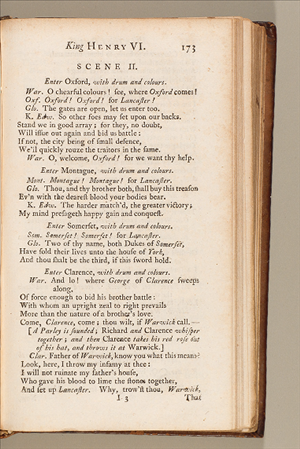 King HENRY VI. 173
SCENE II.
Enter Oxford, with drum and colours.
War. O chearful colours! see, where Oxford comes!
Oxf. Oxford! Oxford! for Lancaster!
Glo. The gates are open, let us enter too.
K. Edw. So other foes may set upon our backs.
Stand we in good array; for they, no doubt,
Will issue out again and bid us battle:
If not, the city being of small defence,
We'll quickly rouze the traitors in the same.
War. O, welcome, Oxford! for we want thy help.
Enter Montague, with drum and colours.
Mont. Montague! Montague! for Lancaster.
Glo. Thou, and thy brother both, shall buy this treason
Ev'n with the dearest blood your bodies bear.
K. Edw. The harder match'd, the greater victory;
My mind presageth happy gain and conquest.
Enter Somerset, with drum and colours.
Som. Somerset! Somerset! for Lancaster.
Glo. Two of thy name, both Dukes of Somerset,
Have sold their lives unto the house of York,
And thou shalt be the third, if this sword hold.
Enter Clarence, with drum and colours.
War. And lo! where George of Clarence sweeps
along,
Of force enough to bid his brother battle:
With whom an upright zeal to right prevails
More than the nature of a brother's love.
Come, Clarence, come; thou wilt, if Warwick call.—
[A Parley is sounded; Richard and Clarence whisper
together; and then Clarence takes his red rose out
of his hat, and throws it at Warwick.]
Clar. Father of Warwick, know you what this means?
Look, here, I throw my infamy at thee:
I will not ruinate my father's house,
Who gave his blood to lime the stones together,
And set up Lancaster. Why, trow'st thou, Warwick,
I 3 That